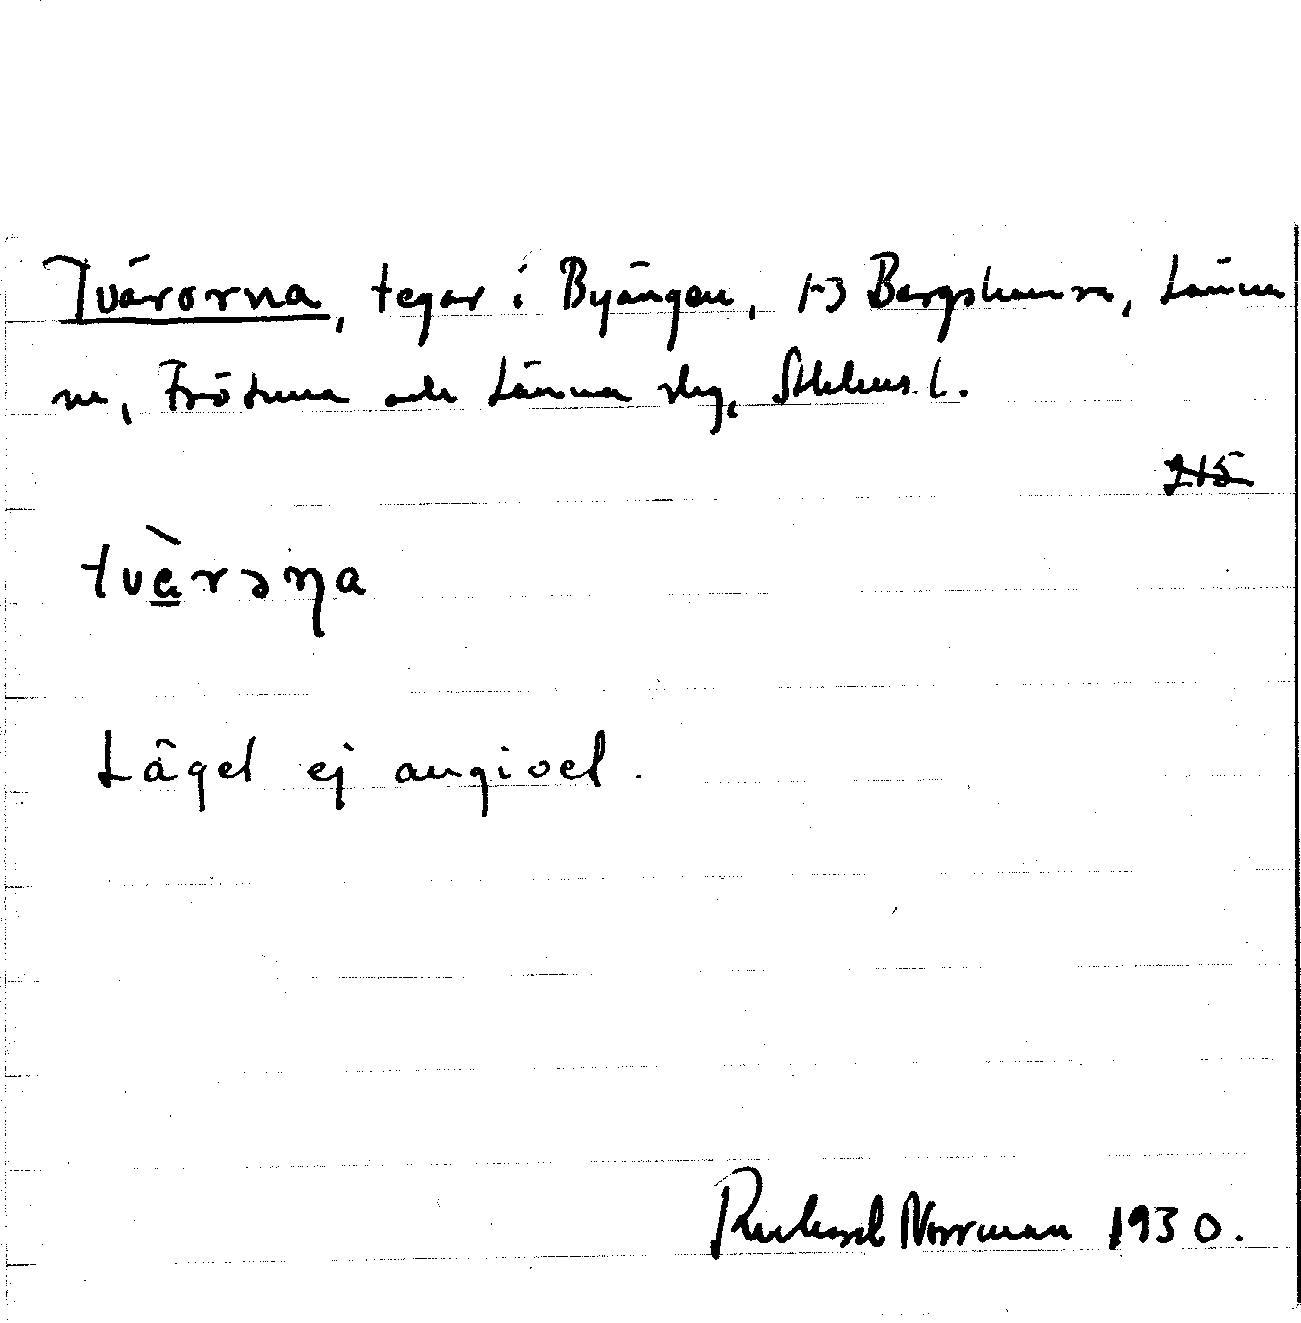 Tvärorna, tegar i Byängen, 1-3 Bergshamra, Länna
sn, Frötuna och Länna skg, Sthlms l.
215
tvèrəɳa
Läget ej angivet.
Richard Norrman 1930.